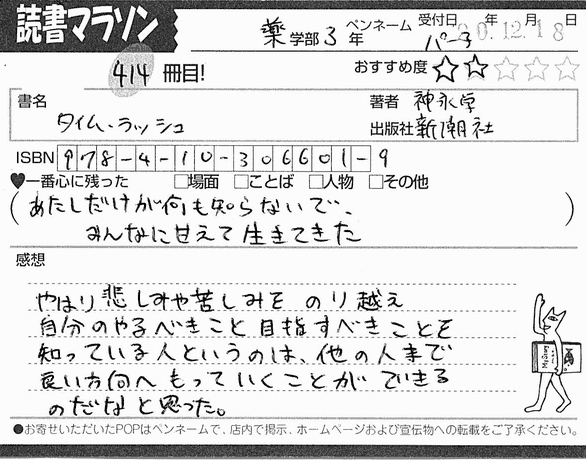 読書マラソン
薬学部3年 ペンネーム パー子 受付日 20.12.18 年 月 日
414冊目! おすすめ度 ☆☆☆☆☆
書名 タイム・ラッシュ
著者 神永学
出版社 新潮社
ISBN 978-4-10-306601-9
♥一番心に残った □場面 □ことば □人物 □その他
(あたしだけが何も知らないで、
みんなに甘えて生きてきた)
感想
やはり悲しみや苦しみをのり越え
自分のやるべきこと目指すべきことを
知っている人というのは、他の人まで
良い方向へもっていくことができる
のだなと思った。
●お寄せいただいたPOPはペンネームで、店内で掲示、ホームページおよび宣伝物への転載をご了承ください。